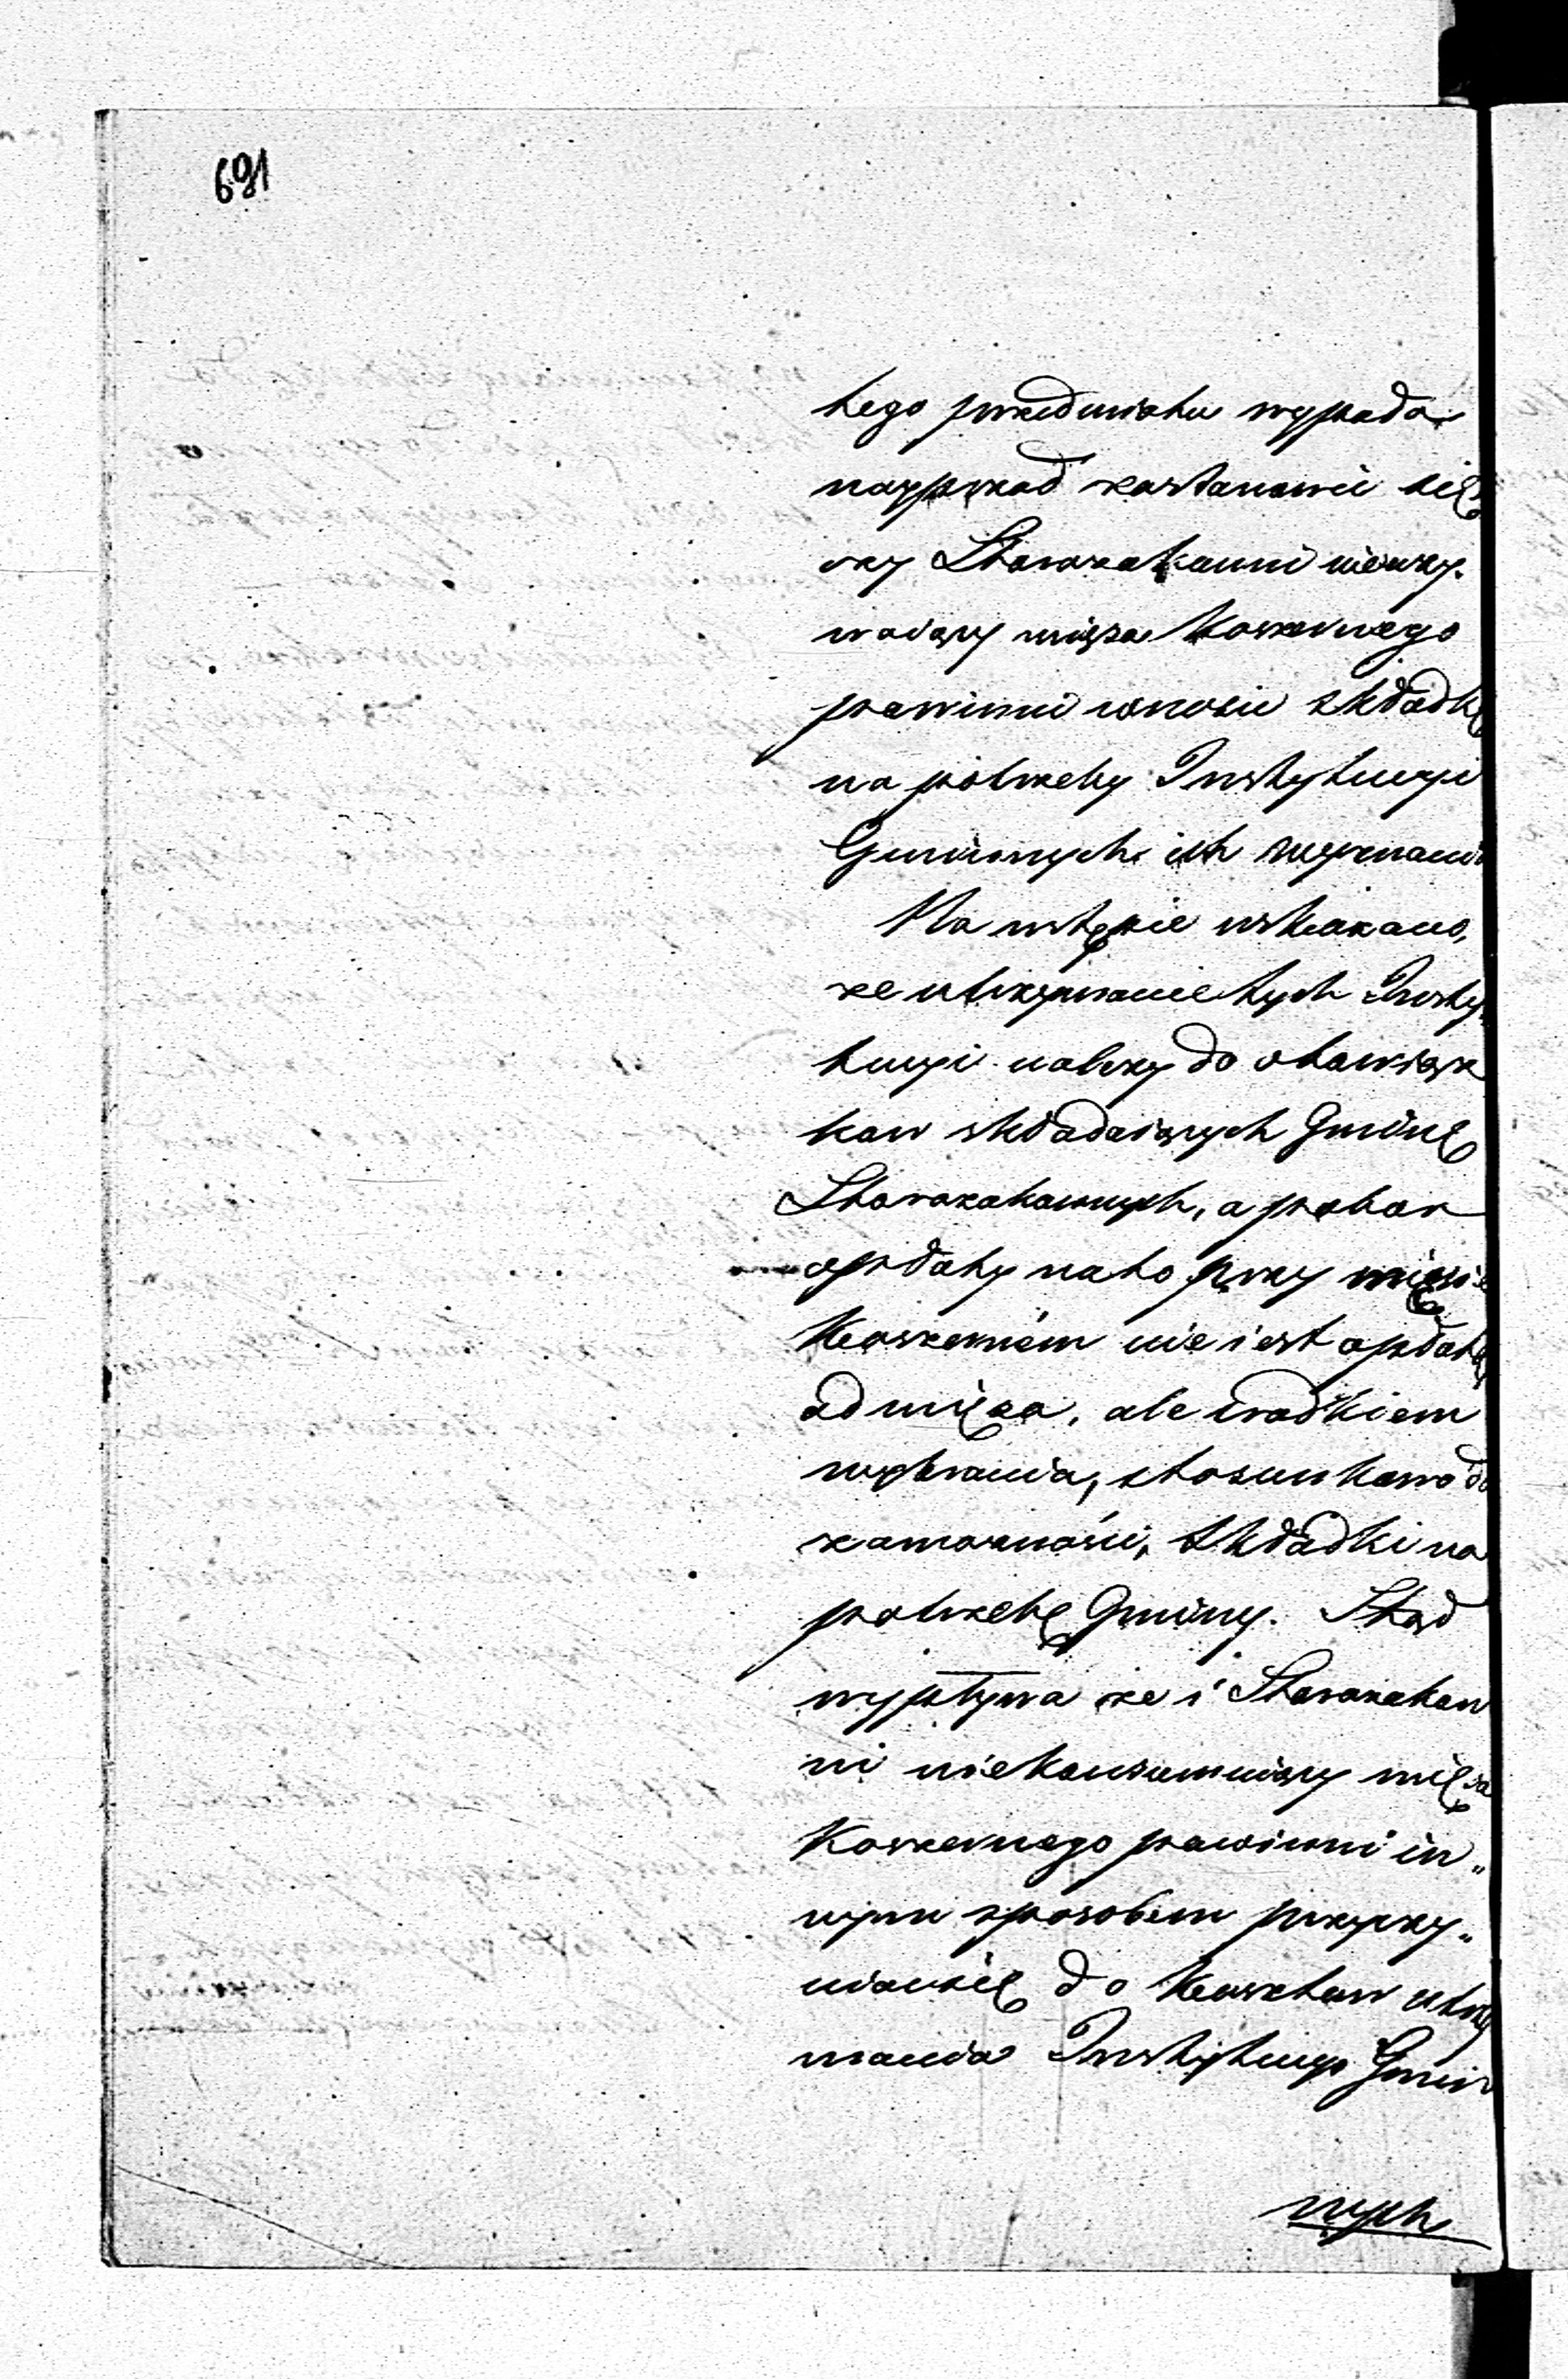 691
tego przedmiotu wypada
nayprzód zastanowić się
czy Starozakonni nieuży-
waiący mięsa Koszernego
powinni wnosić składkę
na potrzeby Instytucyi
Gminnych ich wyznania
Na wstępie wskazano,
że utrzymanie tych Insty
tucyi należy do obowiąz
ków składaiących Gminę
Starozakonnych, a pobór
opłaty na to przy mięsie
Koszerném nie iest opłatą
od mięsa, ale środkiem
wybrania, stosunkowo do
zamożności, składki na
potrzebę Gminy. Stąd
wypływa że i Starozakon
ni niekonsumuiący mięsa
Koszernego powinni in„
nym sposobem przyczy„
niać się do Kosztów utrzy
mania Instytucyi Gmin
nych